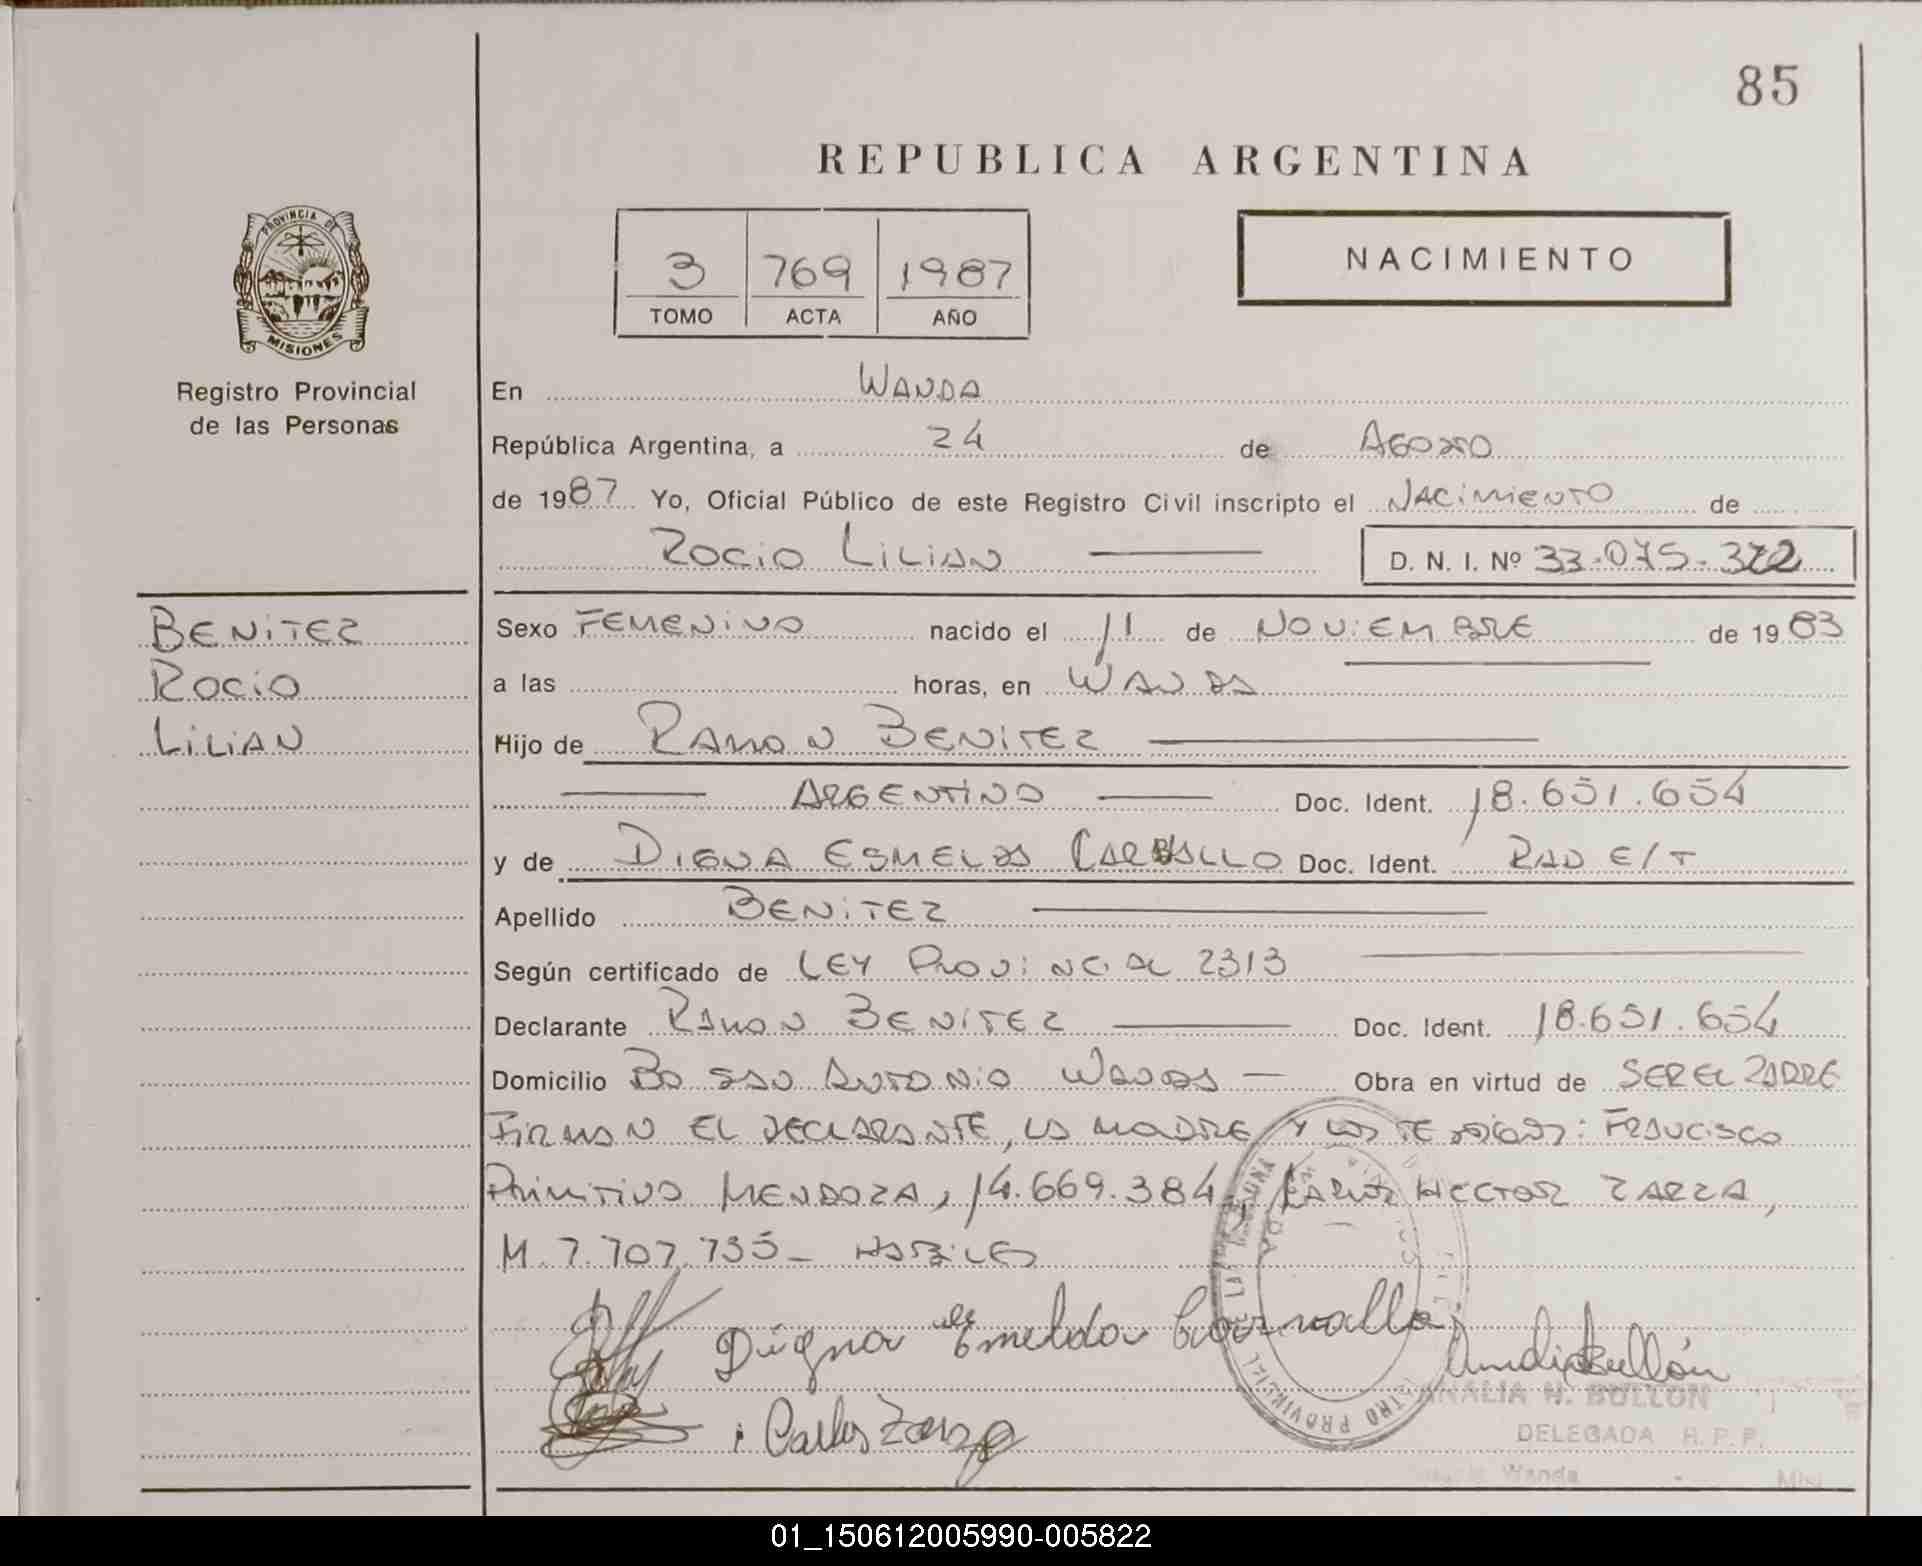 85
REPUBLICA ARGENTINA
PROVINCIA DE
MISIONES
Registro Provincial
de las Personas
3 769 1987
TOMO ACTA AÑO
NACIMIENTO
En WANDA
República Argentina, a 24 de AGOSTO
de 1987 Yo, Oficial Público de este Registro Civil inscripto el NACIMIENTO de
ROCIO LILIAN D. N. I. Nº 33.075.372
BENITEZ
ROCIO
LILIAN
Sexo FEMENINO nacido el 11 de NOVIEMBRE de 1983
a las horas, en WANDA
Hijo de RAMON BENITEZ
ARGENTINO Doc. Ident. 18.651.654
y de DIGNA ESMELDA CARBALLO Doc. Ident. RAD E/T
Apellido BENITEZ
Según certificado de LEY PROVINCIAL 2313
Declarante RAMON BENITEZ Doc. Ident. 18.651.654
Domicilio Bo SAN ANTONIO WANDA — Obra en virtud de SER EL PADRE
FIRMAN EL DECLARANTE, LA MADRE Y LOS TESTIGOS: FRANCISCO
PRIMITIVO MENDOZA, 14.669.384, CARLOS HECTOR ZARZA,
M. 7.707.735 - HABILES
Digna Esmelda Carvallo
Carlos Zarza
ANALIA N. BULLON
DELEGADA R. P. P.
Wanda - Mis
01_150612005990-005822